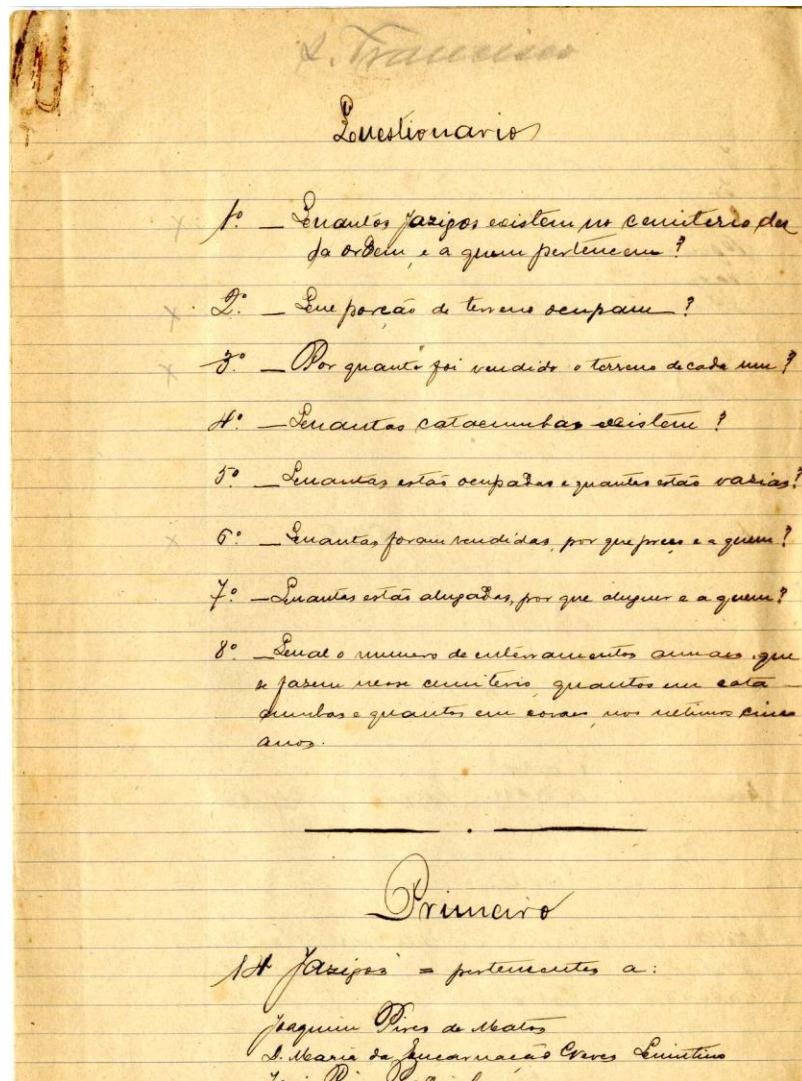 S. Francisco
Questionario
1º — Quantos jazigos existem no cemiterio des
ta ordem, e a quem pertencem?
2º — Que porção de terreno ocupam?
3º — Por quanto foi vendido o terreno de cada um?
4º — Quantas catacumbas existem?
5º — Quantas estão ocupadas e quantas estão vasias?
6º — Quantas foram vendidas, por que preço e a quem?
7º — Quantas estão alugadas, por que aluguer e a quem?
8º — Qual o numero de enterramentos annaes que
se fazem nesse cemiterio, quantos em cata
cumbas e quantos em covas, nos ultimos cinco
anos.
Primeiro
14 Jazigos = pertencentes a:
Joaquim Pires de Matos
D. Maria da Encarnação Neves Quintino